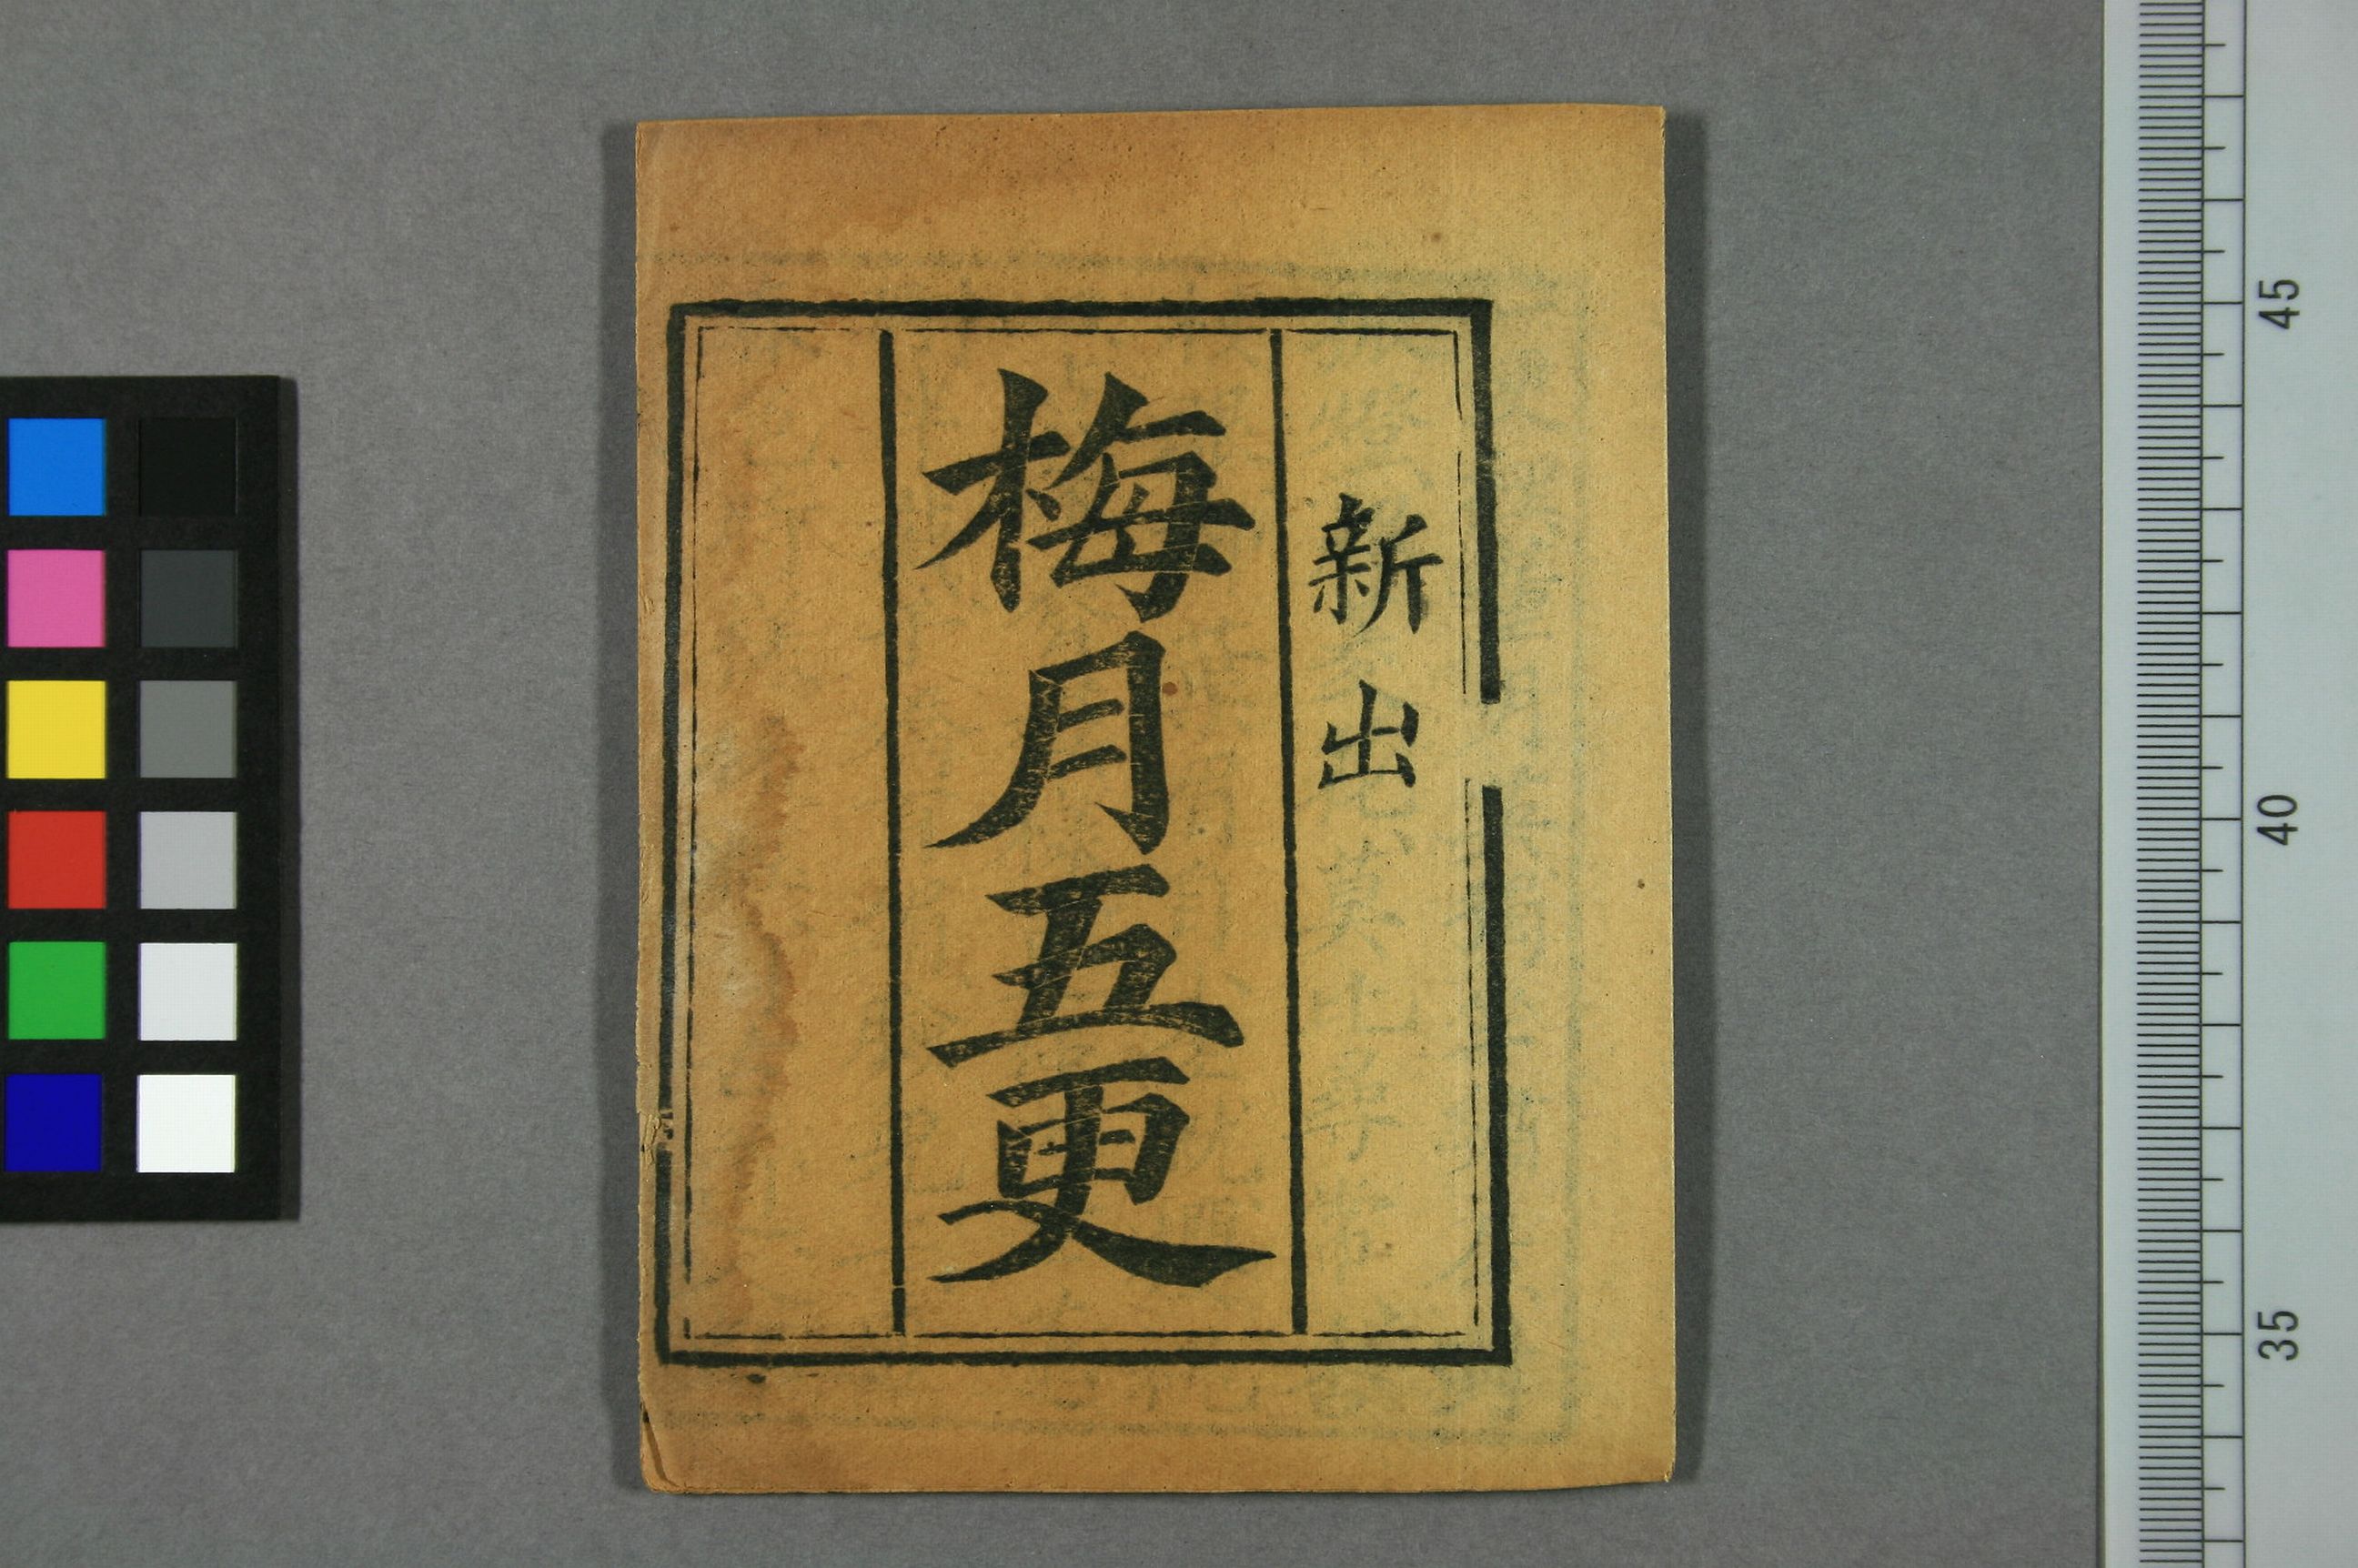 新出
梅月五更
45
40
35